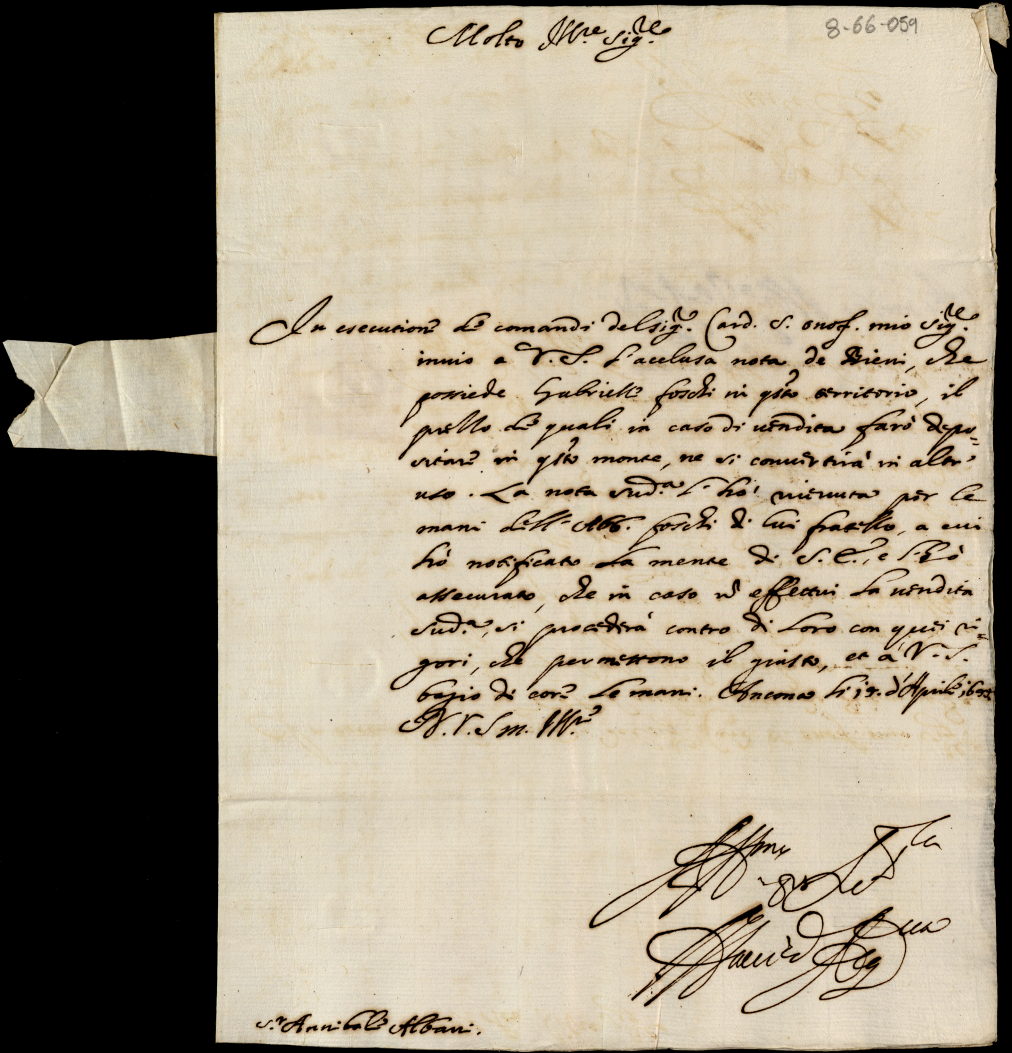 8-66-059
Molto Ill.re Sig.re
In esecution~ de comandi del sig.re Card. S. Onof. mio sig.re
inuio a V.S. l'acclusa nota de Bieni, che
possiede Gabriell~ foschi in q~sto territorio, il
prezzo de quali in caso di uendita farò depo=
sitare in q~sto monte, ne si conuertirà in altr~
uso. La nota sud.a l'hò riceuuta per le
mani dell'Abb. foschi di lui fratello, a cui
hò notificato la mente di S.E., e l'hò
assecurato, che in caso n~ effettui la uendita
sud.a, si procederà contro di loro con quei ri=
gori, che permettono il giusto, et à V.S.
bagio di cor~ le mani. Ancona li 13. d'Aprile 163
D. V. S. m. Ill.re
Aff.mo
S.r Annibale Albani.